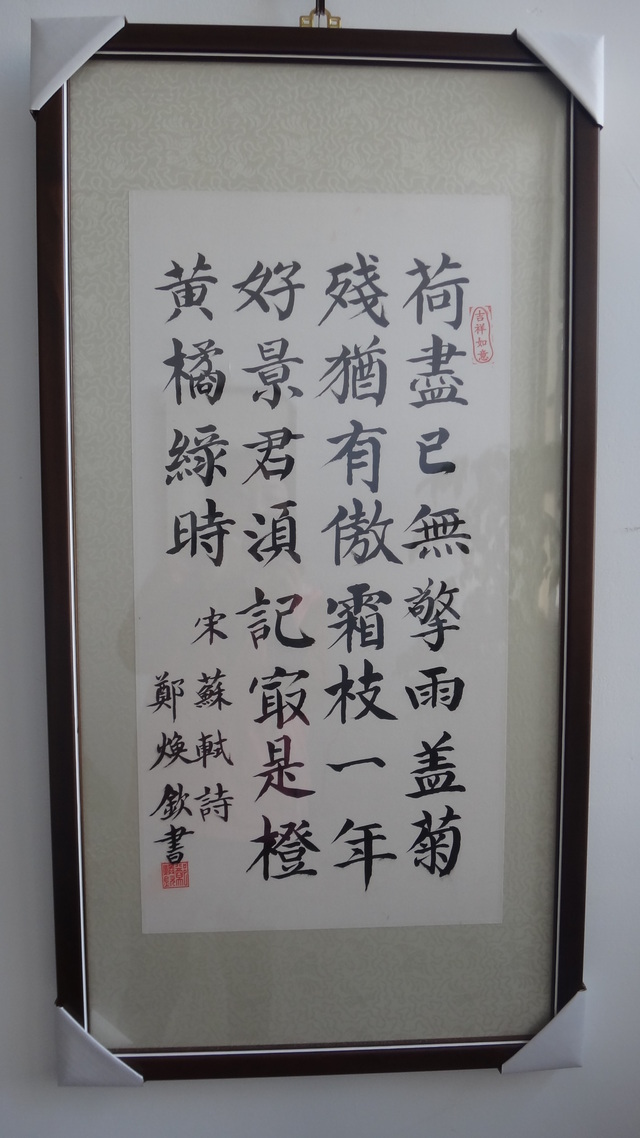 吉祥如意
荷盡已無擎雨盖菊
殘猶有傲霜枝一年
好景君湏記㝡是橙
黄橘緑時
宋蘇軾詩
鄭煥欽書